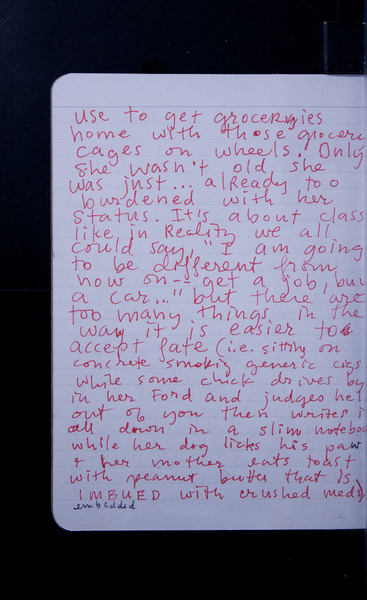 use to get groceryies
home with those grocere
cages on wheels. Only
she wasn't old she
was just... already too
burdened with her
status. It's about class
like, in Reality we all
could say, "I am going
to be different from
now on -- get a job, bu
a car..." but there are
too many things in the
way it is easier to
accept fate (i.e. sitting on
concrete smoking generic cigs
while some chick drives by
in her Ford and judges hel
out of you then writes i
all down in a slim noteboo
while her dog licks his paw
+ her mother eats toast
with peanut butter that is
IMBUED with crushed meds)
embedded